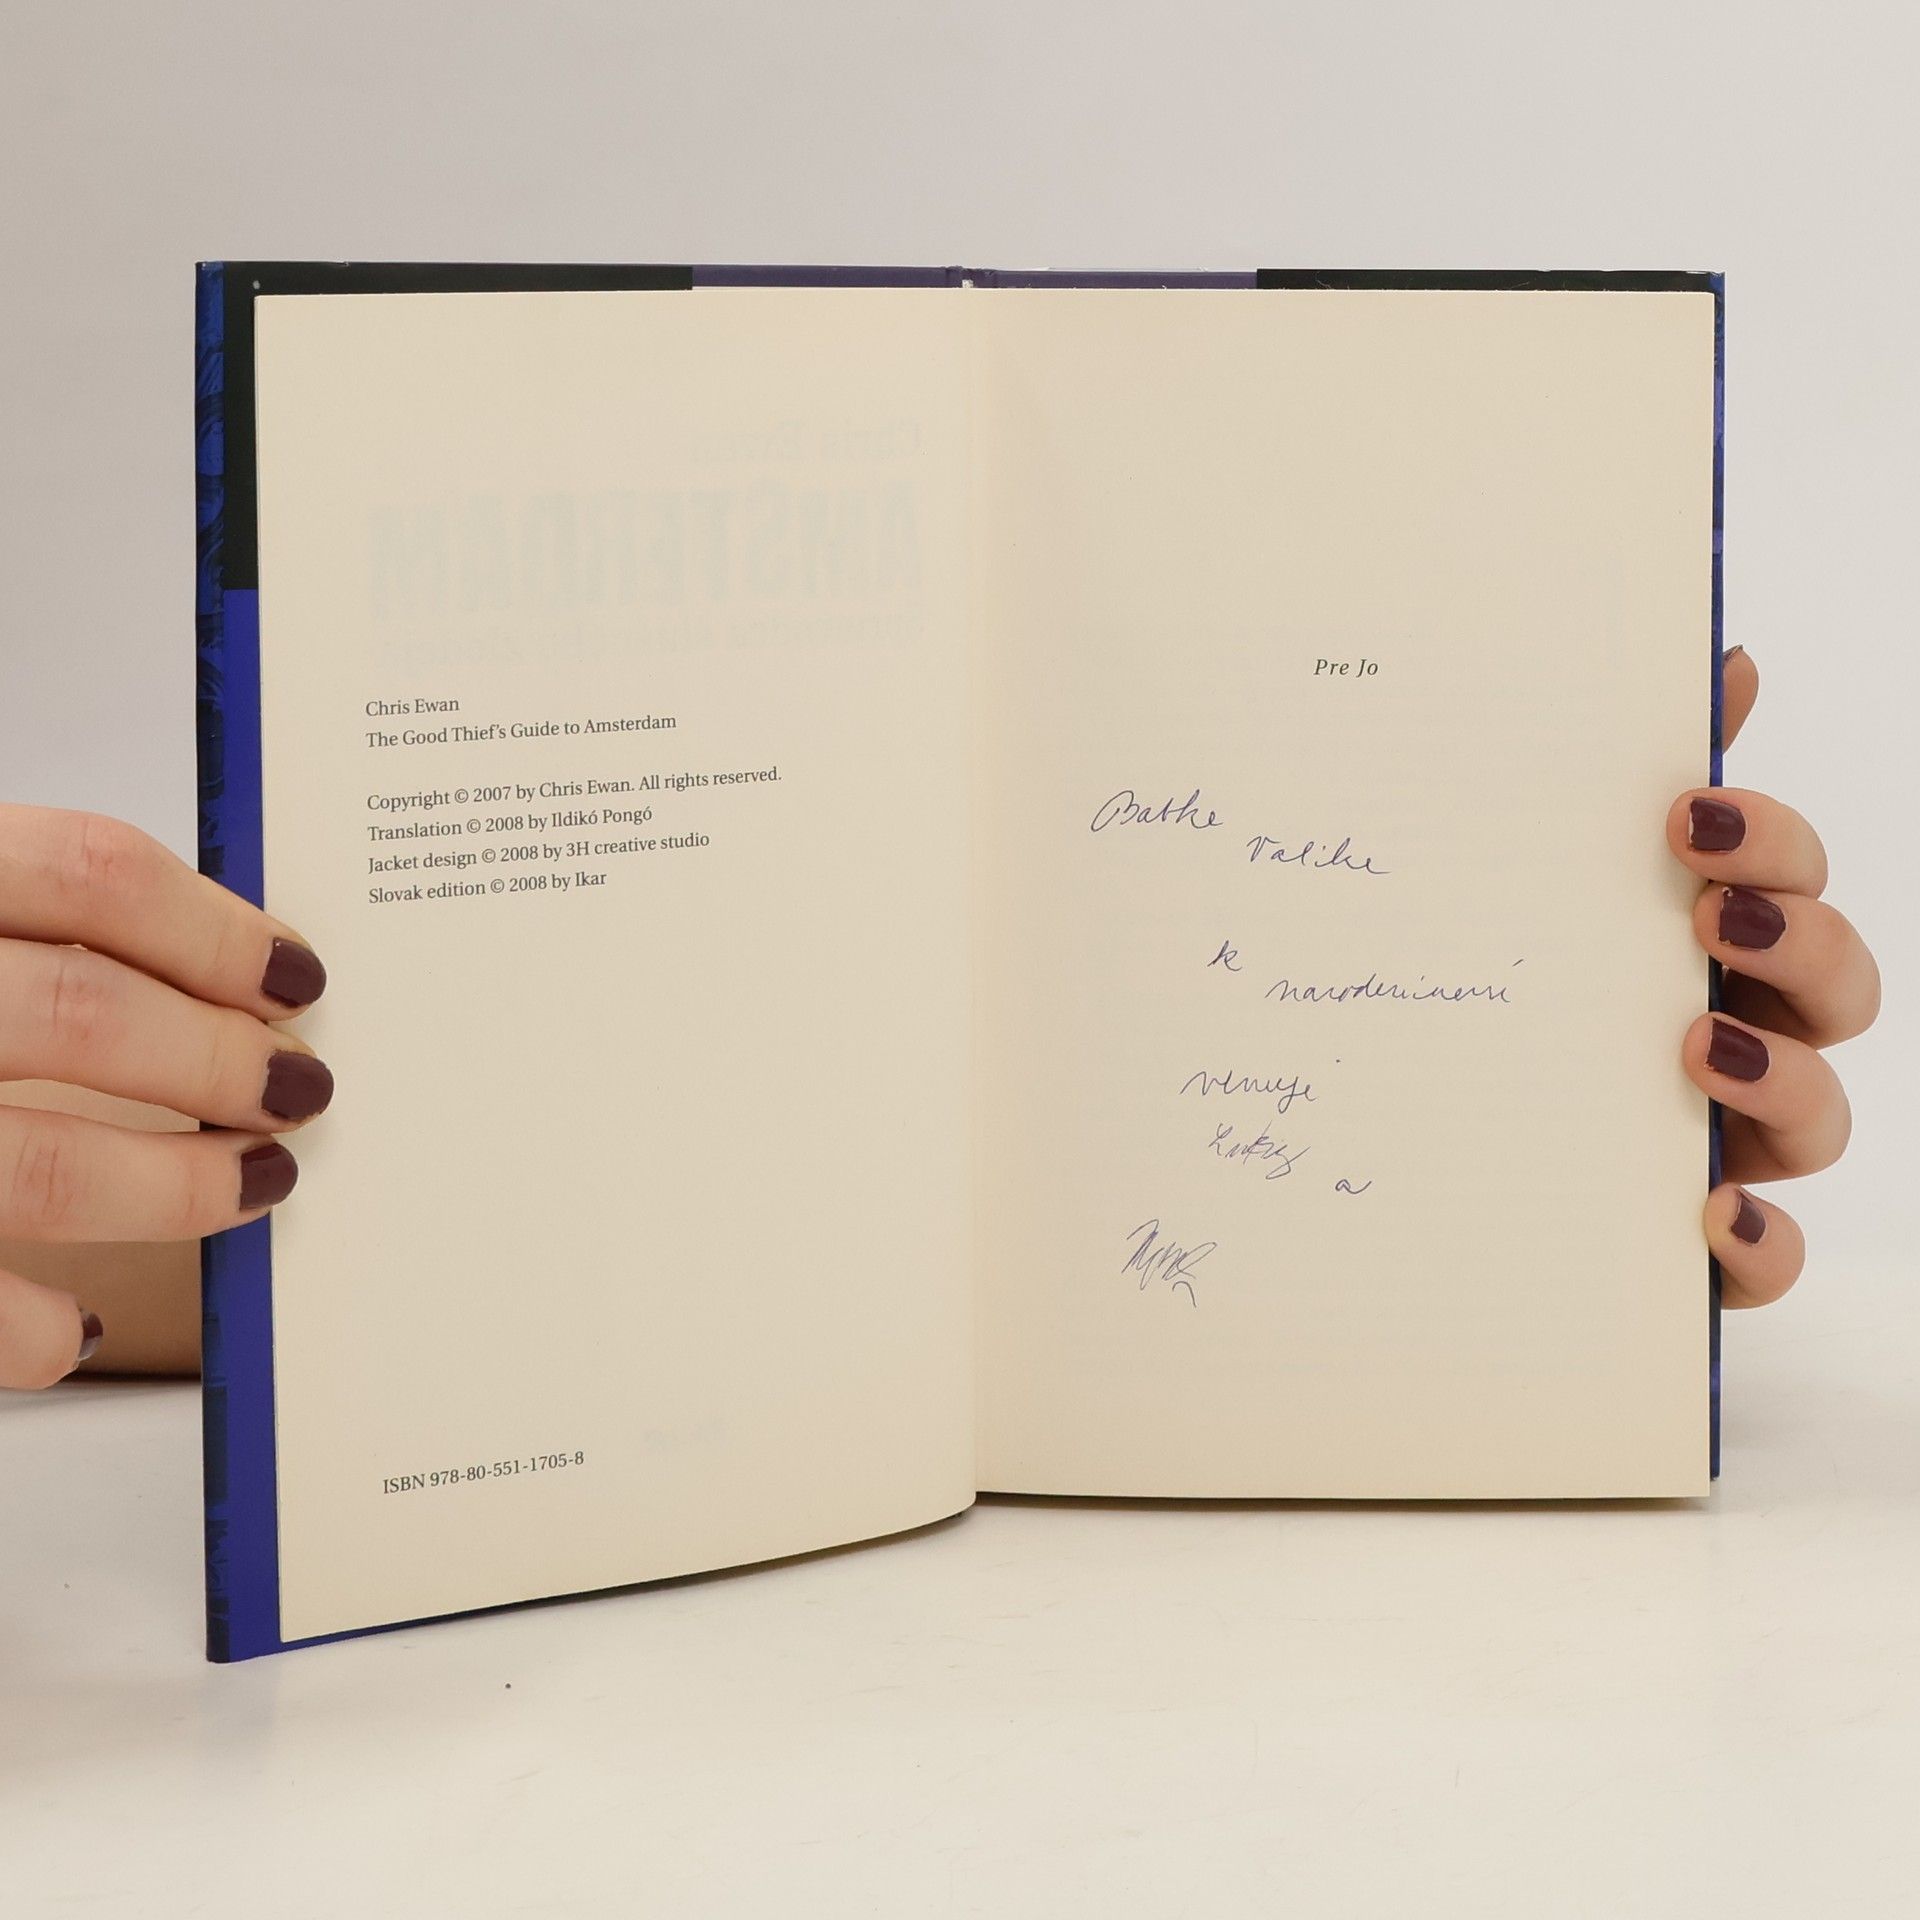 Chris Ewan
The Good Thief's Guide to Amsterdam
Copyright © 2007 by Chris Ewan. All rights reserved.
Translation © 2008 by Ildikó Pongó
Jacket design © 2008 by 3H creative studio
Slovak edition © 2008 by Ikar
ISBN 978-80-551-1705-8
Pre Jo
Babke
Valike
k
narodeninám
venuje
a